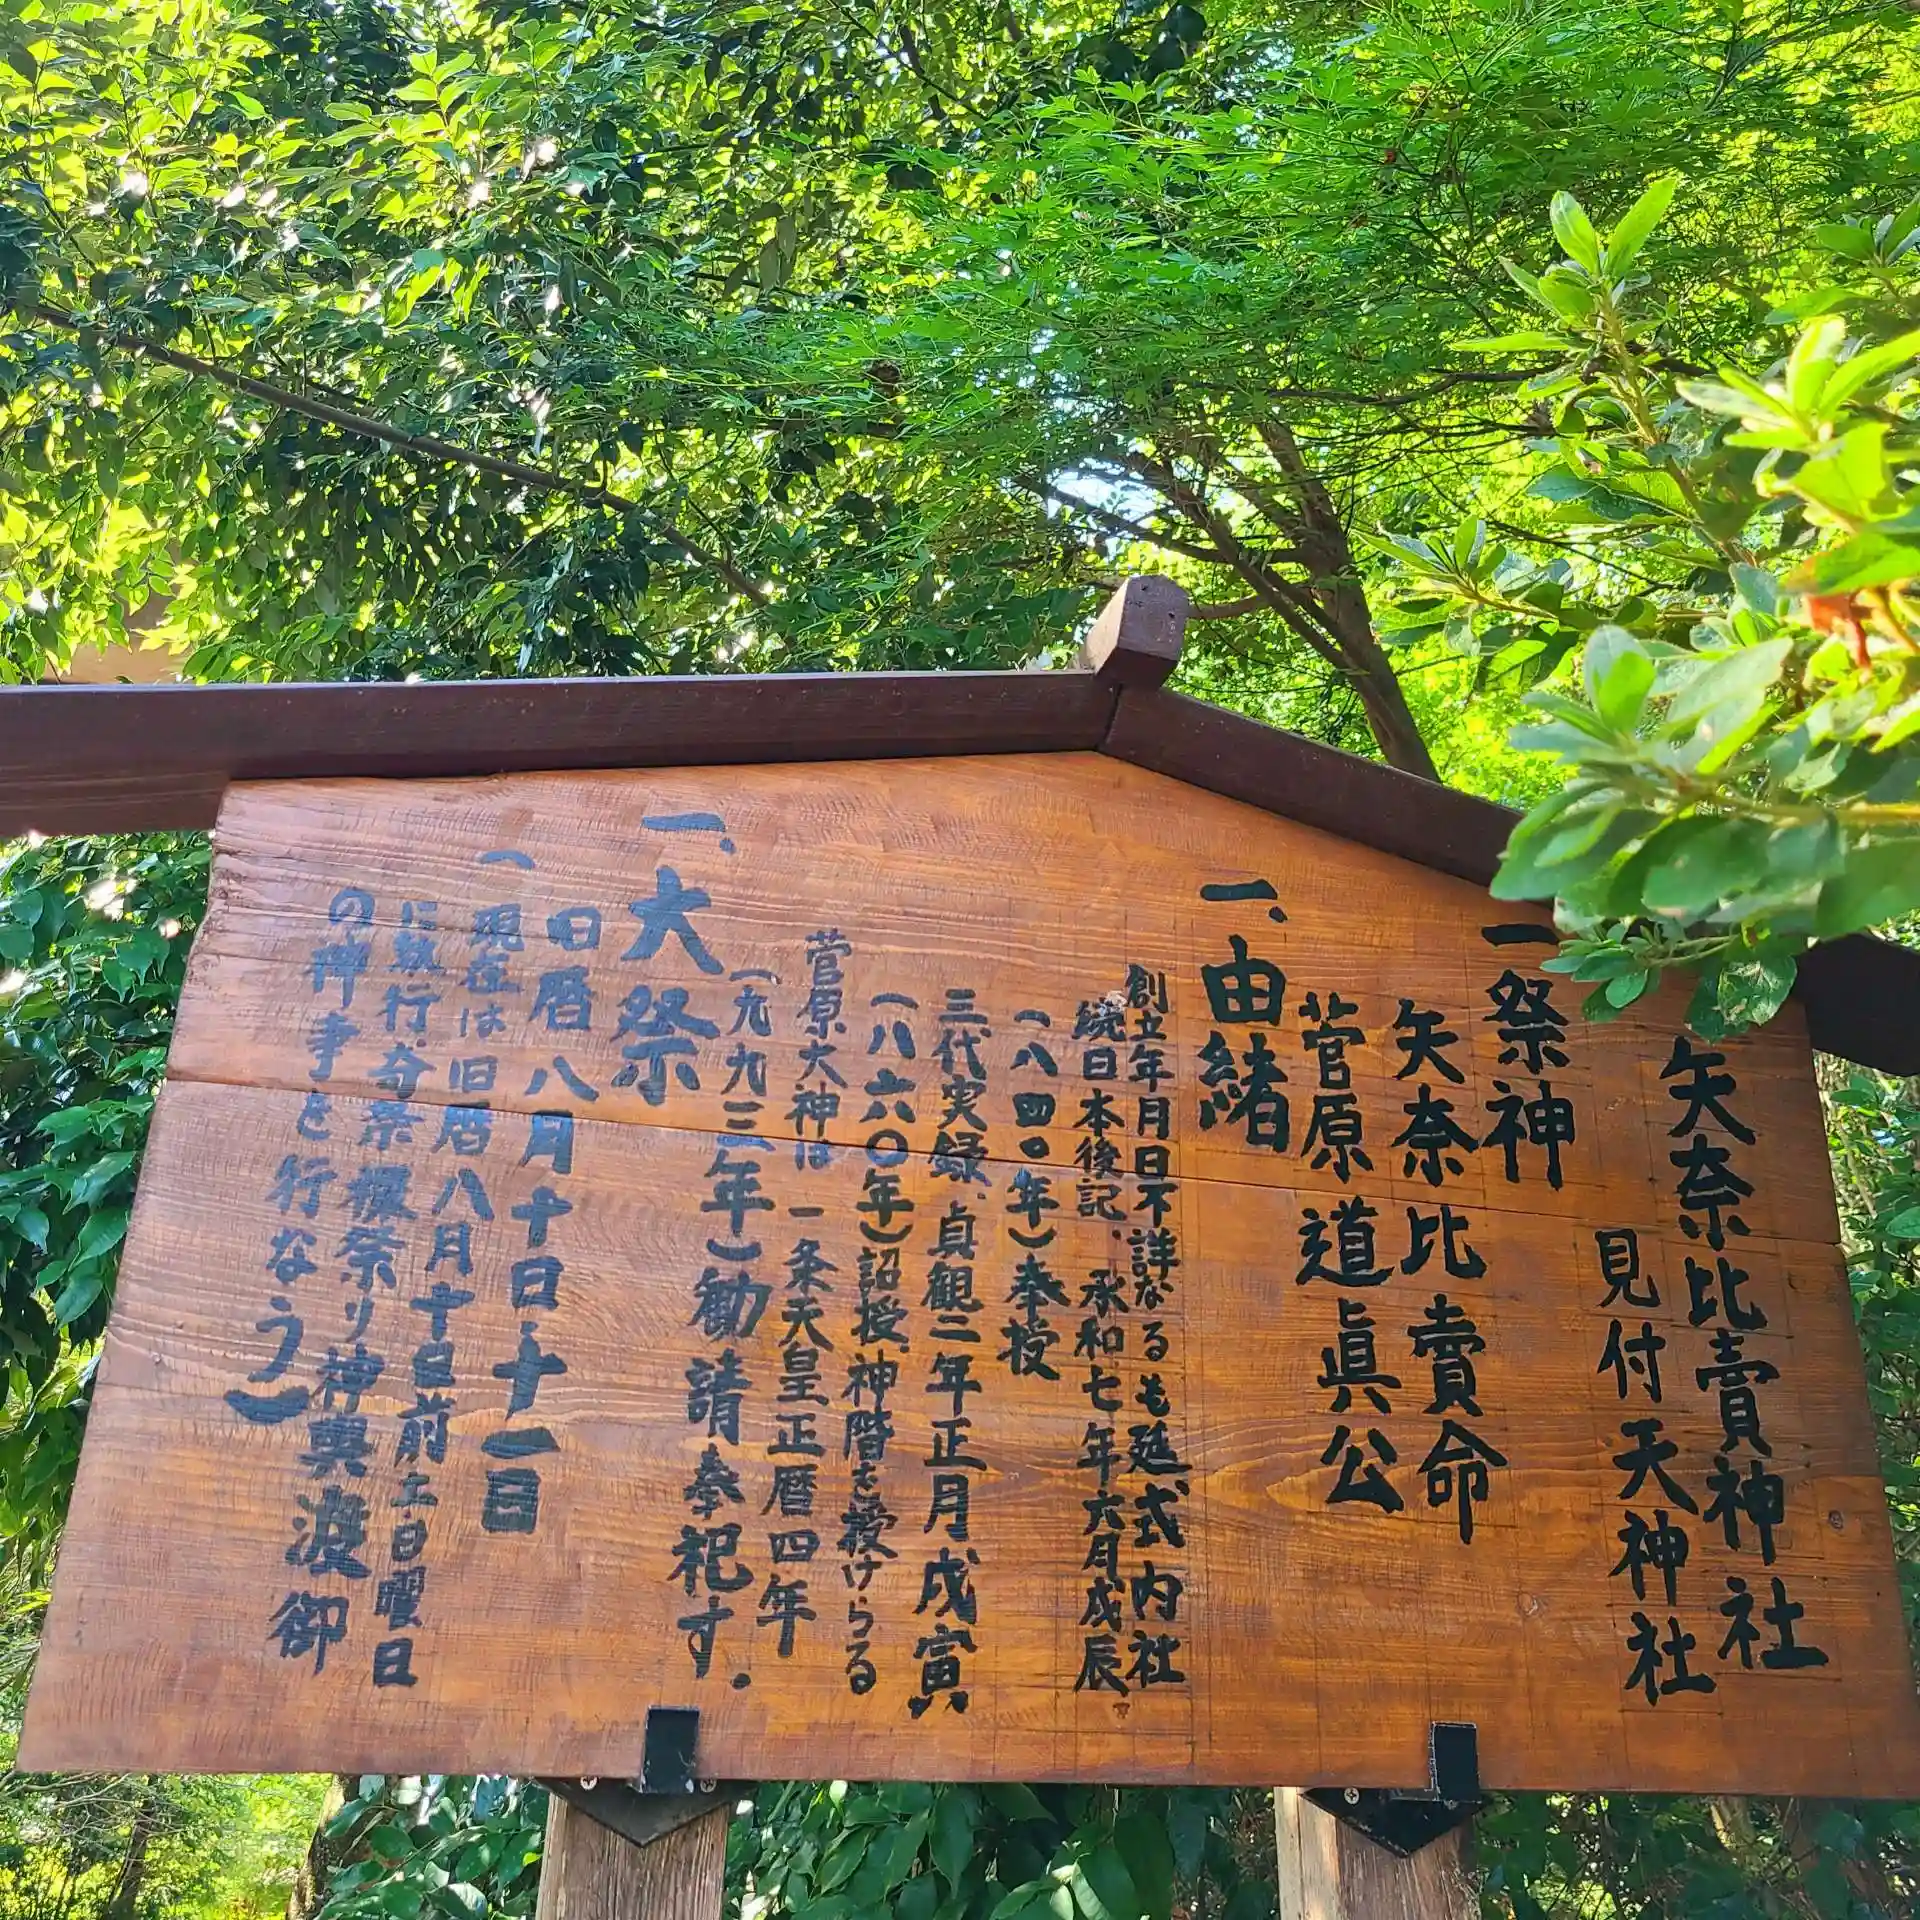 矢奈比賣神社
見付天神社
一祭神
矢奈比賣命
菅原道眞公
一、由緒
創立年月日不詳なるも延式内社
続日本後記、承和七年六月戌辰
(八四〇年)奉授
三代実録、貞観二年正月戌寅
(八六〇年)詔授、神階を授けらる
菅原大神は一条天皇正暦四年
(九九三年)勧請奉祀す.
一、大祭
旧暦八月十日・十一日
(現在は旧暦八月十日前土日曜日
に執行、奇祭裸祭り神輿渡御
の神事を行なう)